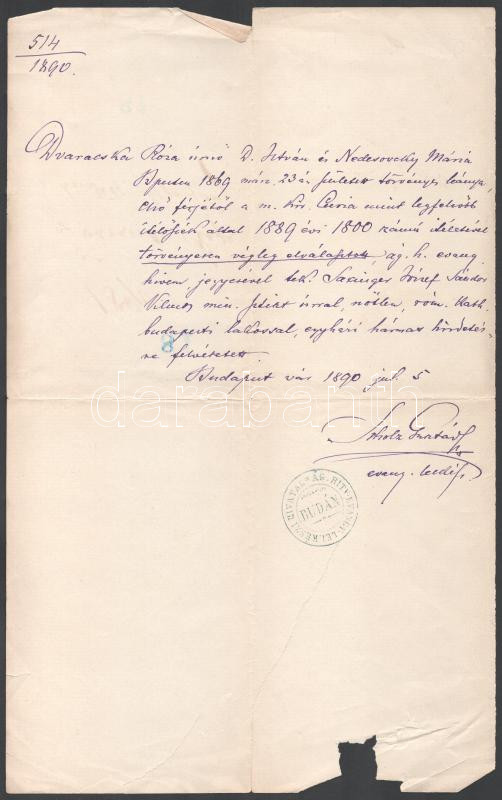 514
1890.
Dvaracska Róza úrnő D. István és Nedesovcky Mária
Bpesten 1869 márc. 23án született törvényes leánya
első férjétől a m. kir. Curia mint legfelsőbb
itélőszék által 1889 évi 1800 számú itéletével
törvényesen végleg elválasztott, ág. h. evang.
hiven jegyesével tek. József Sándor
Vilmos min. úrral, nőtlen, róm. kath.
budapesti lakossal, egyházi hármas hirdetés-
re felvétetett.
Budapest vár 1890 júl. 5
Scholz Gusztáv
evang. lelkész.
ÁG. HITV. EVANG. LELKÉSZI HIVATAL
BUDÁN
darabanth